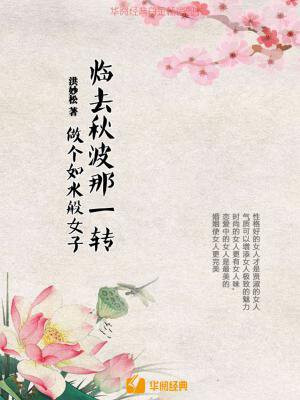 华阅经典
临去秋波那一转
做个如水般女子
洪妙松 著
性格好的女人才是贤淑的女人
气质可以增添女人极致的魅力
时尚的女人更有女人味。
恋爱中的女人是最美的
婚姻使女人更完美
华阅经典